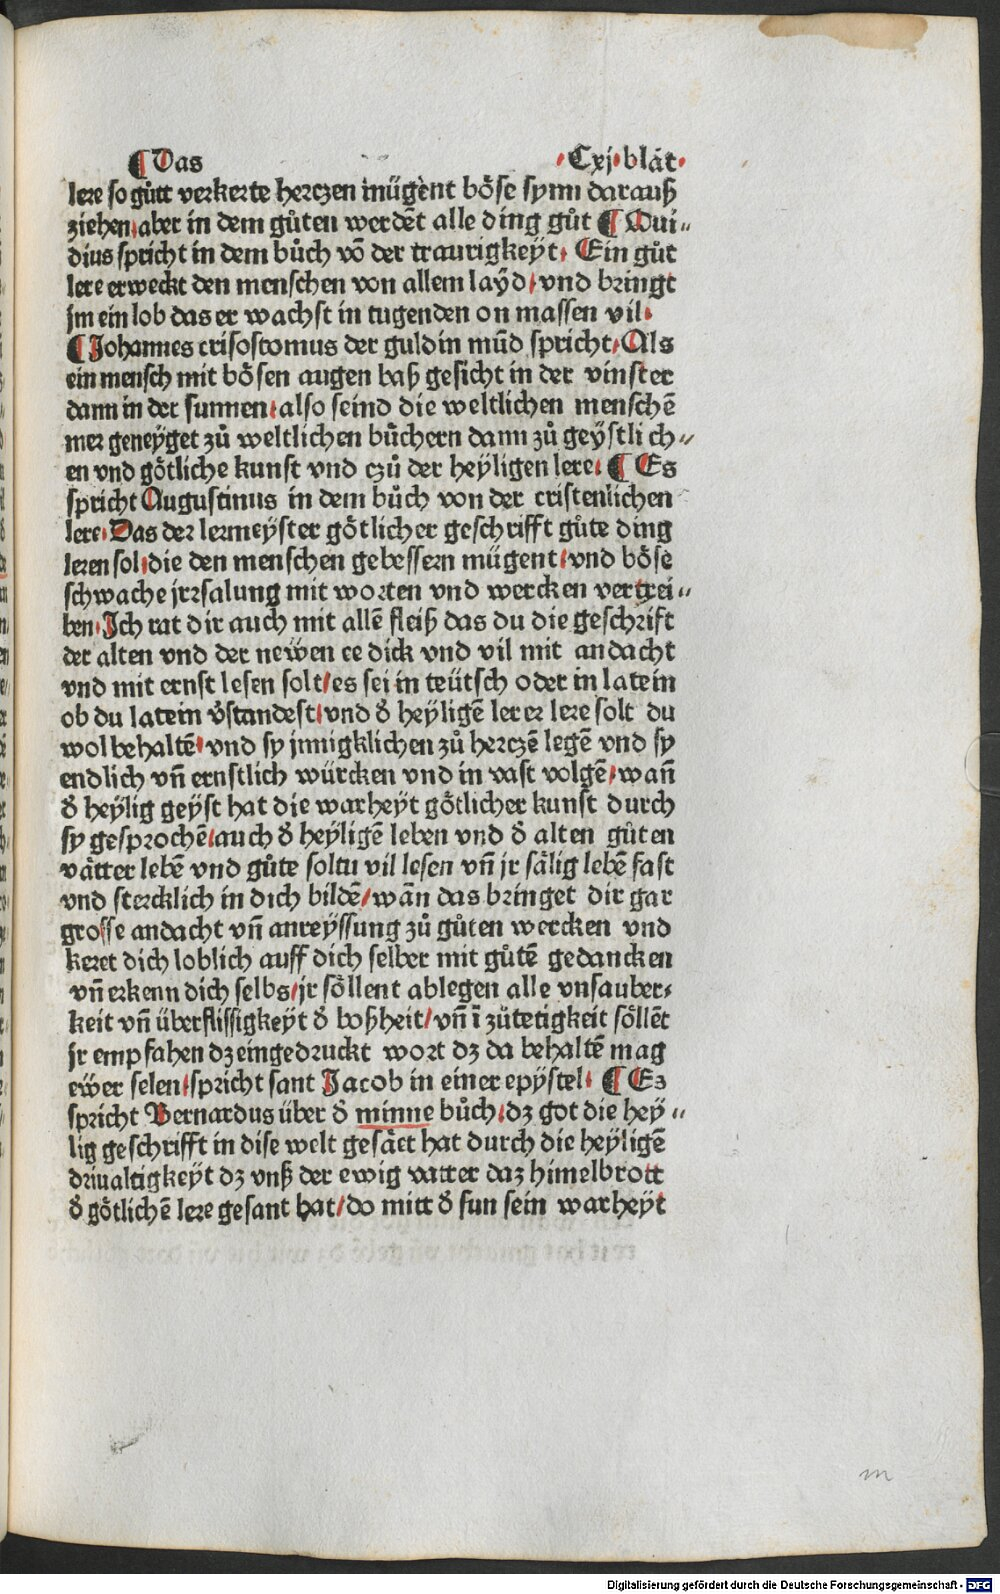 ¶ Das · Cxj · blåt ·
lere so gůtt verkerte herczen mügent böse synn darauß
ziehen · aber in dem gůten werdēt alle ding gůt ¶ Oui⸗
dius spricht in dem bůch võ der traurigkeÿt · Ein gůt
lere erweckt den menschen von allem laÿd / vnd bringt
jm ein lob das er wachst in tugenden on massen vil ·
¶ Johannes crisostomus der guldin mūd spricht · Als
ein mensch mit bösen augen baß gesicht in der vinster
dann in der sunnen · also seind die weltlichen menschē
mer geneÿget zů weltlichen bůchern dann zů geÿstlich⸗
en vnd götliche kunst vnd czů der heÿligen lere · ¶ Es
spricht Augustinus in dem bůch von der cristenlichen
lere · Das der lermeÿster götlicher geschrifft gůte ding
leren sol · die den menschen gebessern mügent / vnd böse
schwache jrrsalung mit worten vnd wercken vertrei⸗
ben · Ich rat dir auch mit allē fleiß das du die geschrift
der alten vnd der newen ee dick vnd vil mit andacht
vnd mit ernst lesen solt / es sei in teütsch oder in latein
ob du latein v̓standest / vnd d̓ heÿligē lerer lere solt du
wol behaltē · vnd sy jnnigklichen zů herczē legē vnd sy
endlich vñ ernstlich würcken vnd in vast volgē / wañ
d̓ heÿlig geÿst hat die warheÿt götlicher kunst durch
sy gesprochē / auch d̓ heÿligē leben vnd d̓ alten gůten
våtter lebē vnd gůte soltu vil lesen vñ jr sålig lebē fast
vnd stercklich in dich bildē / wān das bringet dir gar
grosse andacht vñ anreÿssung zů gůten wercken vnd
keret dich loblich auff dich selber mit gůtē gedancken
vñ erkenn dich selbs / jr söllent ablegen alle vnsauber⸗
keit vñ überflissigkeÿt d̓ boßheit / vñ ī zütetigkeit söllēt
jr empfahen dz eingedruckt wort dz da behaltē mag
ewer selen · spricht sant Jacob in einer epÿstel · ¶ Ez
spricht Bernardus über d̓ minne bůch · dz got die heÿ⸗
lig geschrifft in dise welt gesået hat durch die heÿligē
driualtigkeÿt dz vnß der ewig vatter daz himelbrott
d̓ götlichē lere gesant hat / do mitt d̓ sun sein warheÿt
m
Digitalisierung gefördert durch die Deutsche Forschungsgemeinschaft - DFG